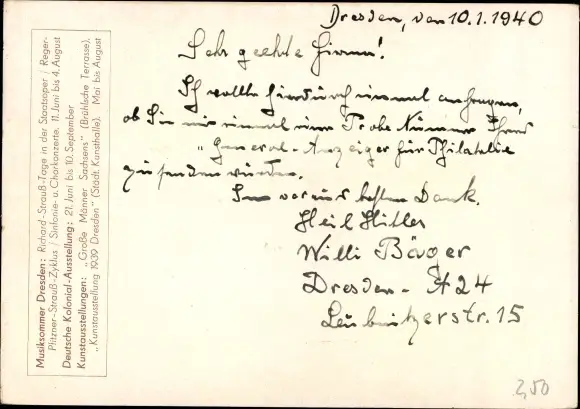 Dresden, den 10.1.1940
Sehr geehrte Firma!
Ich wollte hierdurch einmal anfragen,
ob Sie mir einmal eine Probe Nummer Ihres
„General-Anzeiger für Philatelie
zu senden würden.
Im voraus besten Dank.
Heil Hitler
Willi Böger
Dresden - A 24
Leubnitzerstr. 15
Musiksommer Dresden: Richard-Strauß-Tage in der Staatsoper / Reger-
Pfitzner-Strauß-Zyklus / Sinfonie- u. Chorkonzerte. 11. Juni bis 4. August
Deutsche Kolonial-Ausstellung: 21. Juni bis 10. September
Kunstausstellungen: „Große Männer Sachsens" (Brühlsche Terrasse).
„Kunstausstellung 1939 Dresden" (Städt. Kunsthalle). Mai bis August
2,50